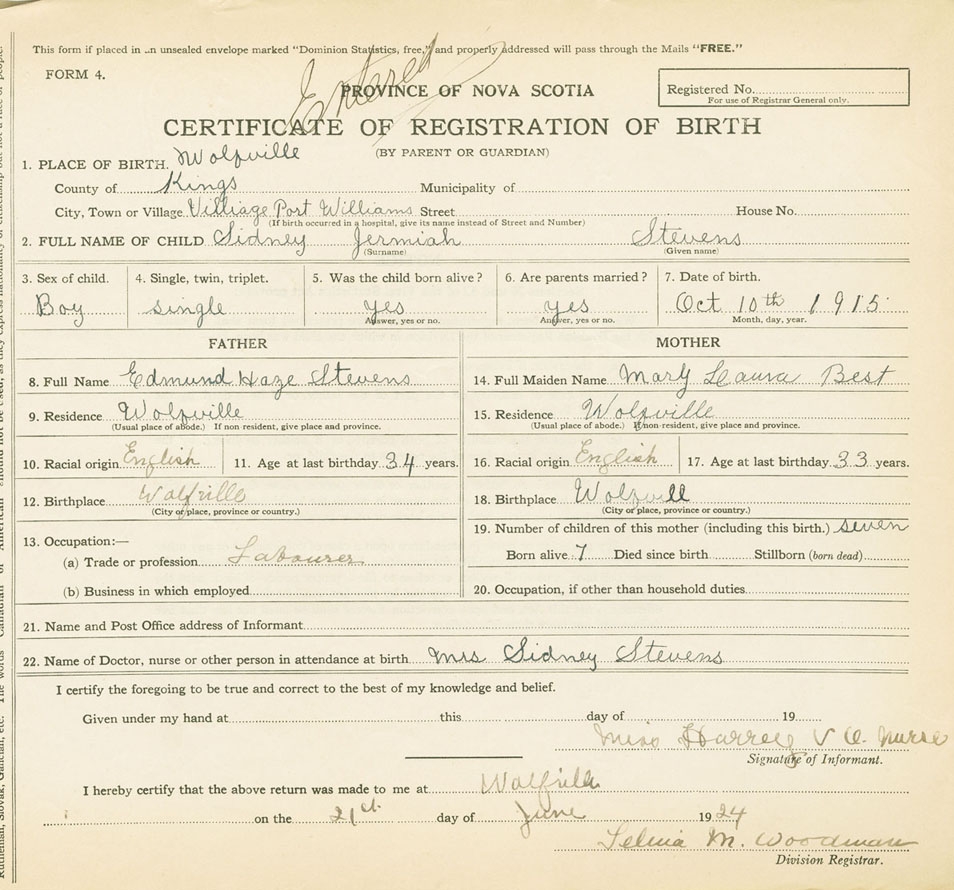 This form if placed in an unsealed envelope marked "Dominion Statistics, free," and properly addressed will pass through the Mails "FREE."
FORM 4.
Entered
PROVINCE OF NOVA SCOTIA
Registered No.
For use of Registrar General only.
CERTIFICATE OF REGISTRATION OF BIRTH
(BY PARENT OR GUARDIAN)
1. PLACE OF BIRTH. Wolfville
County of Kings Municipality of
City, Town or Village Villiage Port Williams Street House No.
(If birth occurred in a hospital, give its name instead of Street and Number)
2. FULL NAME OF CHILD Sidney Jermiah Stevens
(Surname) (Given name)
3. Sex of child. 4. Single, twin, triplet. 5. Was the child born alive? 6. Are parents married? 7. Date of birth.
Boy single yes yes Oct 10th 1915
Answer, yes or no. Answer, yes or no. Month, day, year.
FATHER MOTHER
8. Full Name Edmund Haze Stevens 14. Full Maiden Name Mary Laura Best
9. Residence Wolfville 15. Residence Wolfville
(Usual place of abode.) If non-resident, give place and province. (Usual place of abode.) If non-resident, give place and province.
10. Racial origin English 11. Age at last birthday 34 years. 16. Racial origin English 17. Age at last birthday 33 years.
12. Birthplace Wolfville 18. Birthplace Wolfvill
(City or place, province or country.) (City or place, province or country.)
19. Number of children of this mother (including this birth.) seven
13. Occupation:—
Born alive 7 Died since birth Stillborn (born dead)
(a) Trade or profession Labourer
(b) Business in which employed 20. Occupation, if other than household duties
21. Name and Post Office address of Informant
22. Name of Doctor, nurse or other person in attendance at birth Mrs Sidney Stevens
I certify the foregoing to be true and correct to the best of my knowledge and belief.
Given under my hand at this day of 19
Miss V O. Nurse
Signature of Informant.
I hereby certify that the above return was made to me at Wolfville
on the 21st day of June 1924
Selma M. Woodman
Division Registrar.